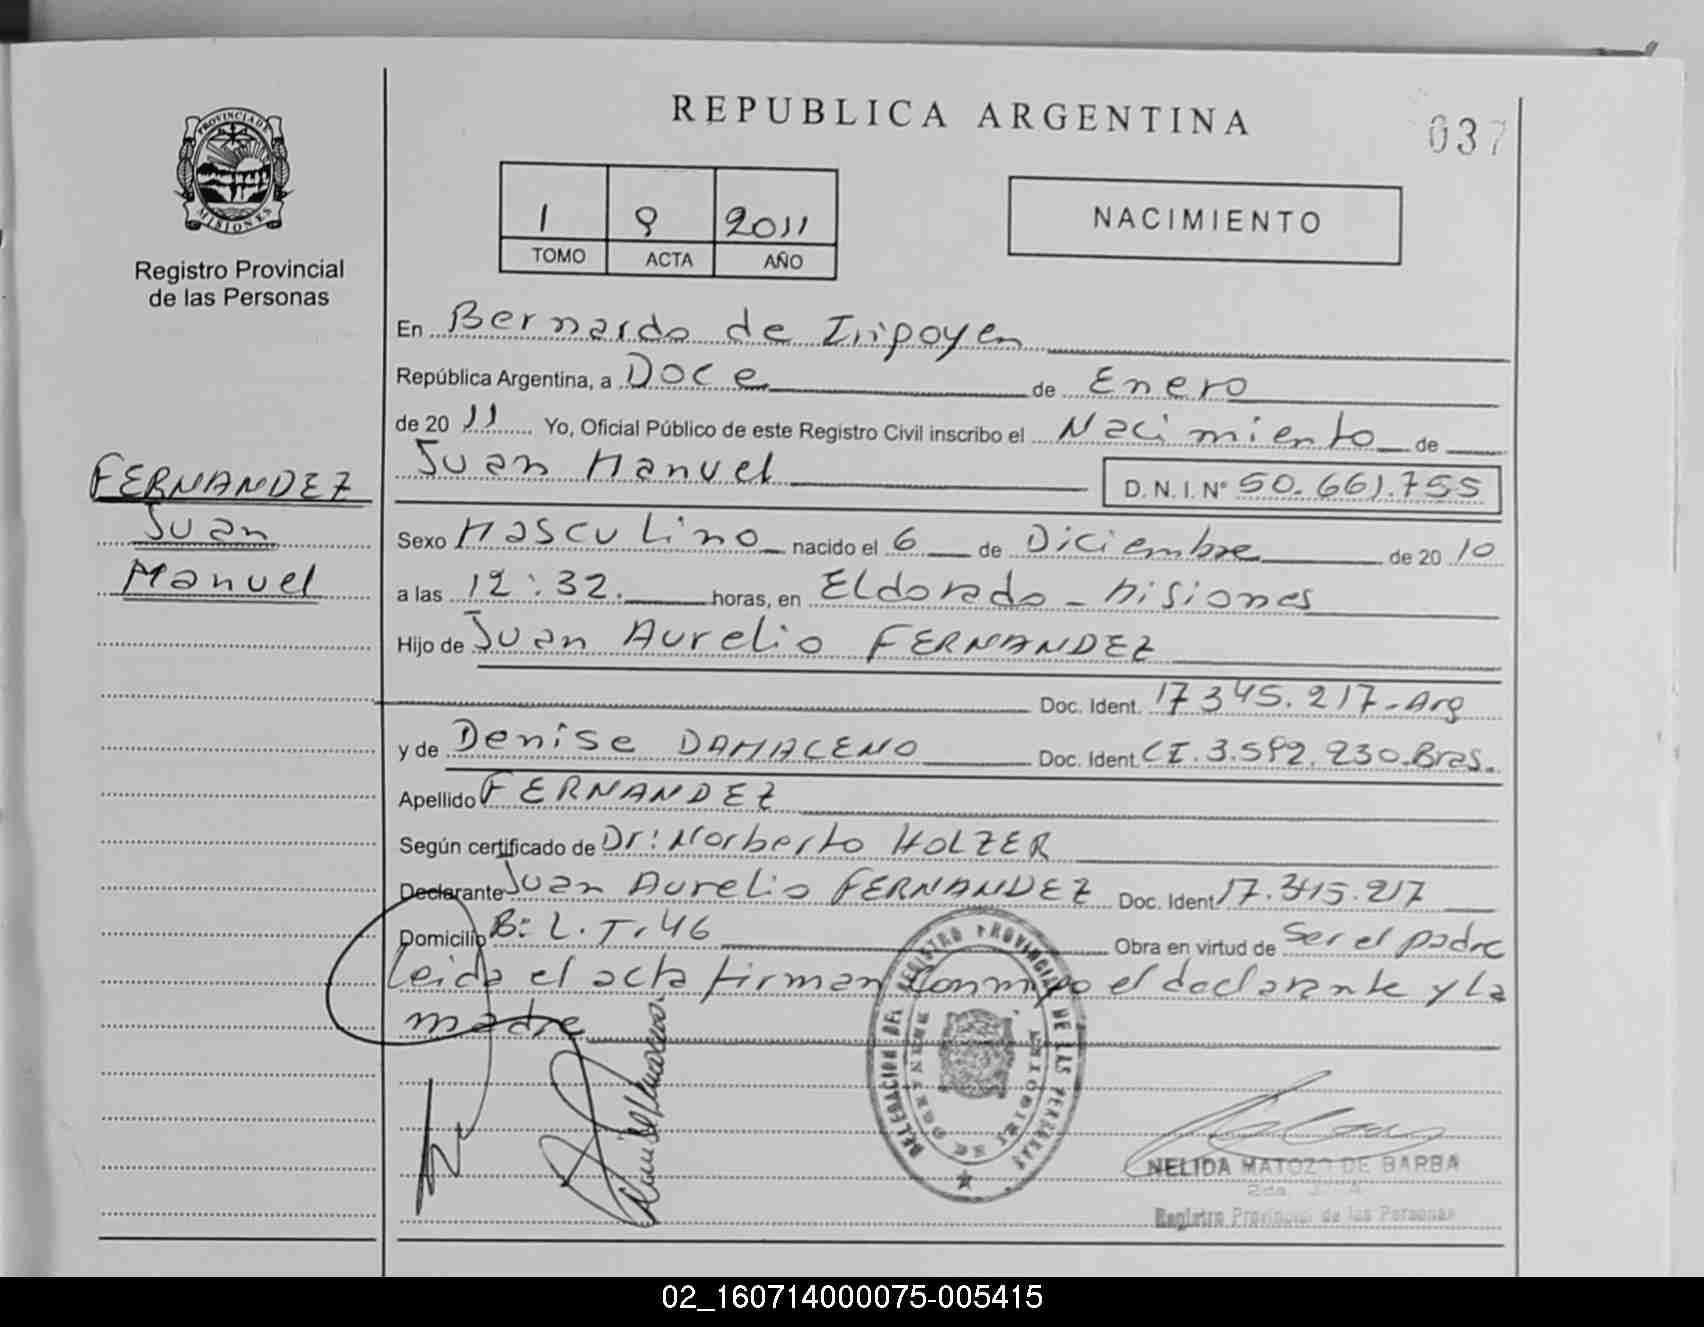 PROVINCIA DE
MISIONES
Registro Provincial
de las Personas
FERNANDEZ
Juan
Manuel
REPUBLICA ARGENTINA
037
1 9 2011
TOMO ACTA AÑO
NACIMIENTO
En Bernardo de Irigoyen
República Argentina, a Doce de Enero
de 2011 Yo, Oficial Público de este Registro Civil inscribo el Nacimiento de
Juan Manuel D.N.I. Nº 50.661.755
Sexo Masculino nacido el 6 de Diciembre de 2010
a las 12:32. horas, en Eldorado - Misiones
Hijo de Juan Aurelio FERNANDEZ
Doc. Ident. 17345.217-Arg
y de Denise DAMACENO Doc. Ident. CI.3.592.230.Bras.
Apellido FERNANDEZ
Según certificado de Dr: Norberto HOLZER
Declarante Juan Aurelio FERNANDEZ Doc. Ident 17.345.217
Domicilio B: L.T. 46 Obra en virtud de Ser el padre
Leida el acta firman conmigo el declarante y la
madre
DELEGACION DEL REGISTRO PROVINCIAL DE LAS PERSONAS
NELIDA MATOZO DE BARBA
Registro Provincial de las Personas
02_160714000075-005415